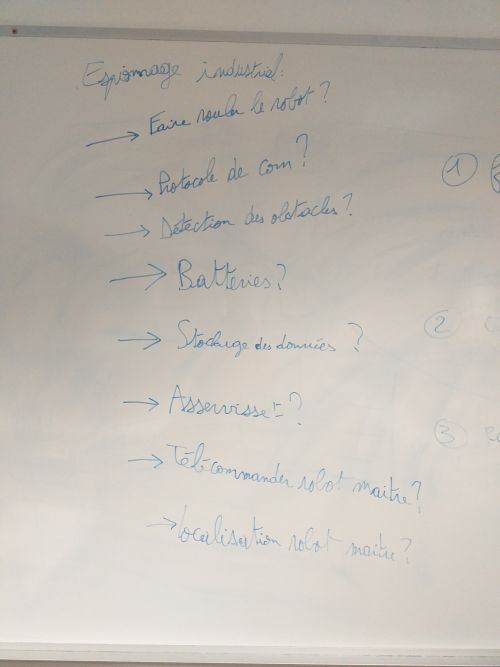 Espionnage industriel:
→ Faire rouler le robot?
→ Protocole de com?
→ Détection des obstacles?
→ Batteries?
→ Stockage des données ?
→ Asservisset=?
→ Télécommander robot maitre?
→ Localisation robot maitre?
1
2
3